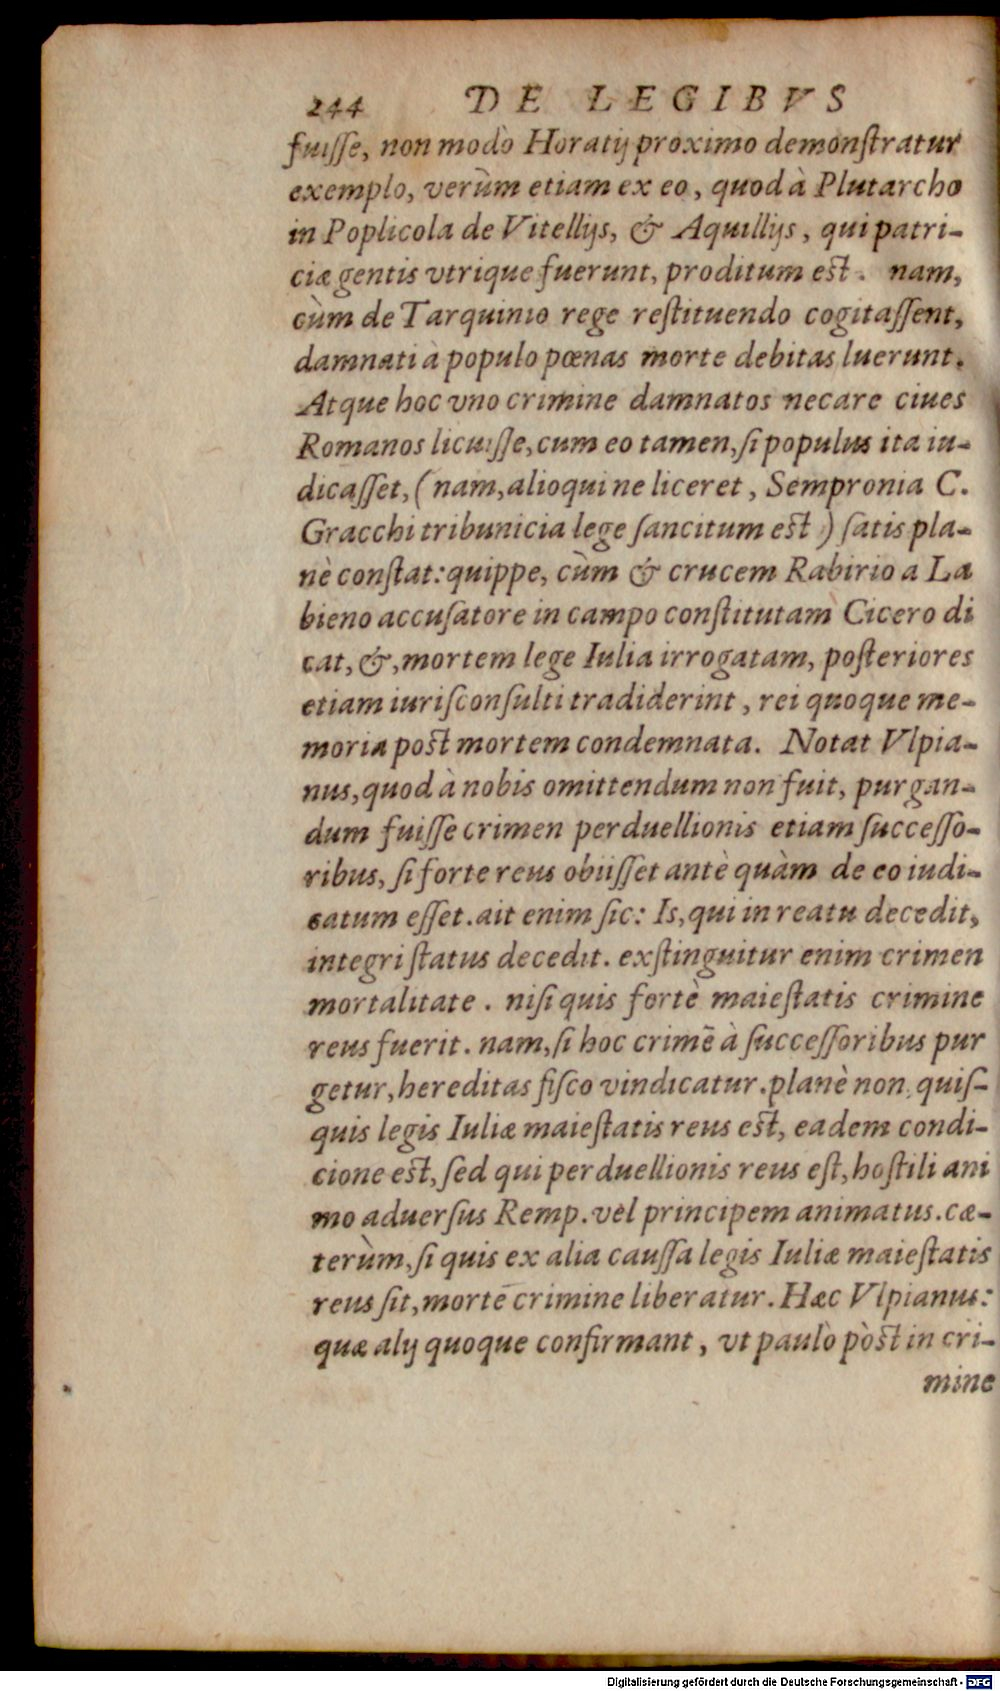 244 DE LEGIBVS
fuiſſe, non modò Horatij proximo demonſtratur
exemplo, verùm etiam ex eo, quod à Plutarcho
in Poplicola de Vitellijs, & Aquillijs, qui patri-
ciæ gentis vtrique fuerunt, proditum eſt. nam,
cùm de Tarquinio rege reſtituendo cogitaſſent,
damnati à populo pœnas morte debitas luerunt.
Atque hoc vno crimine damnatos necare ciues
Romanos licuiſſe, cum eo tamen, ſi populus ita iu-
dicaſſet, (nam, alioqui ne liceret, Sempronia C.
Gracchi tribunicia lege ſancitum eſt) ſatis pla-
nè conſtat: quippe, cùm & crucem Rabirio a La
bieno accuſatore in campo conſtitutam Cicero di
cat, &, mortem lege Iulia irrogatam, poſteriores
etiam iuriſconſulti tradiderint, rei quoque me-
moria poſt mortem condemnata. Notat Vlpia-
nus, quod à nobis omittendum non fuit, purgan-
dum fuiſſe crimen perduellionis etiam ſucceſſo-
ribus, ſi forte reus obiiſſet antè quàm de eo iudi-
catum eſſet. ait enim ſic: Is, qui in reatu decedit,
integri ſtatus decedit. exſtinguitur enim crimen
mortalitate. niſi quis fortè maieſtatis crimine
reus fuerit. nam, ſi hoc crimē à ſucceſſoribus pur
getur, hereditas fiſco vindicatur. planè non quiſ-
quis legis Iuliæ maieſtatis reus eſt, eadem condi-
cione eſt, ſed qui perduellionis reus eſt, hoſtili ani
mo aduerſus Remp. vel principem animatus. cæ-
terùm, ſi quis ex alia cauſſa legis Iuliæ maieſtatis
reus ſit, mortē crimine liberatur. Hæc Vlpianus:
quæ alij quoque confirmant, vt paulò pòſt in cri-
mine
Digitalisierung gefördert durch die Deutsche Forschungsgemeinschaft - DFG